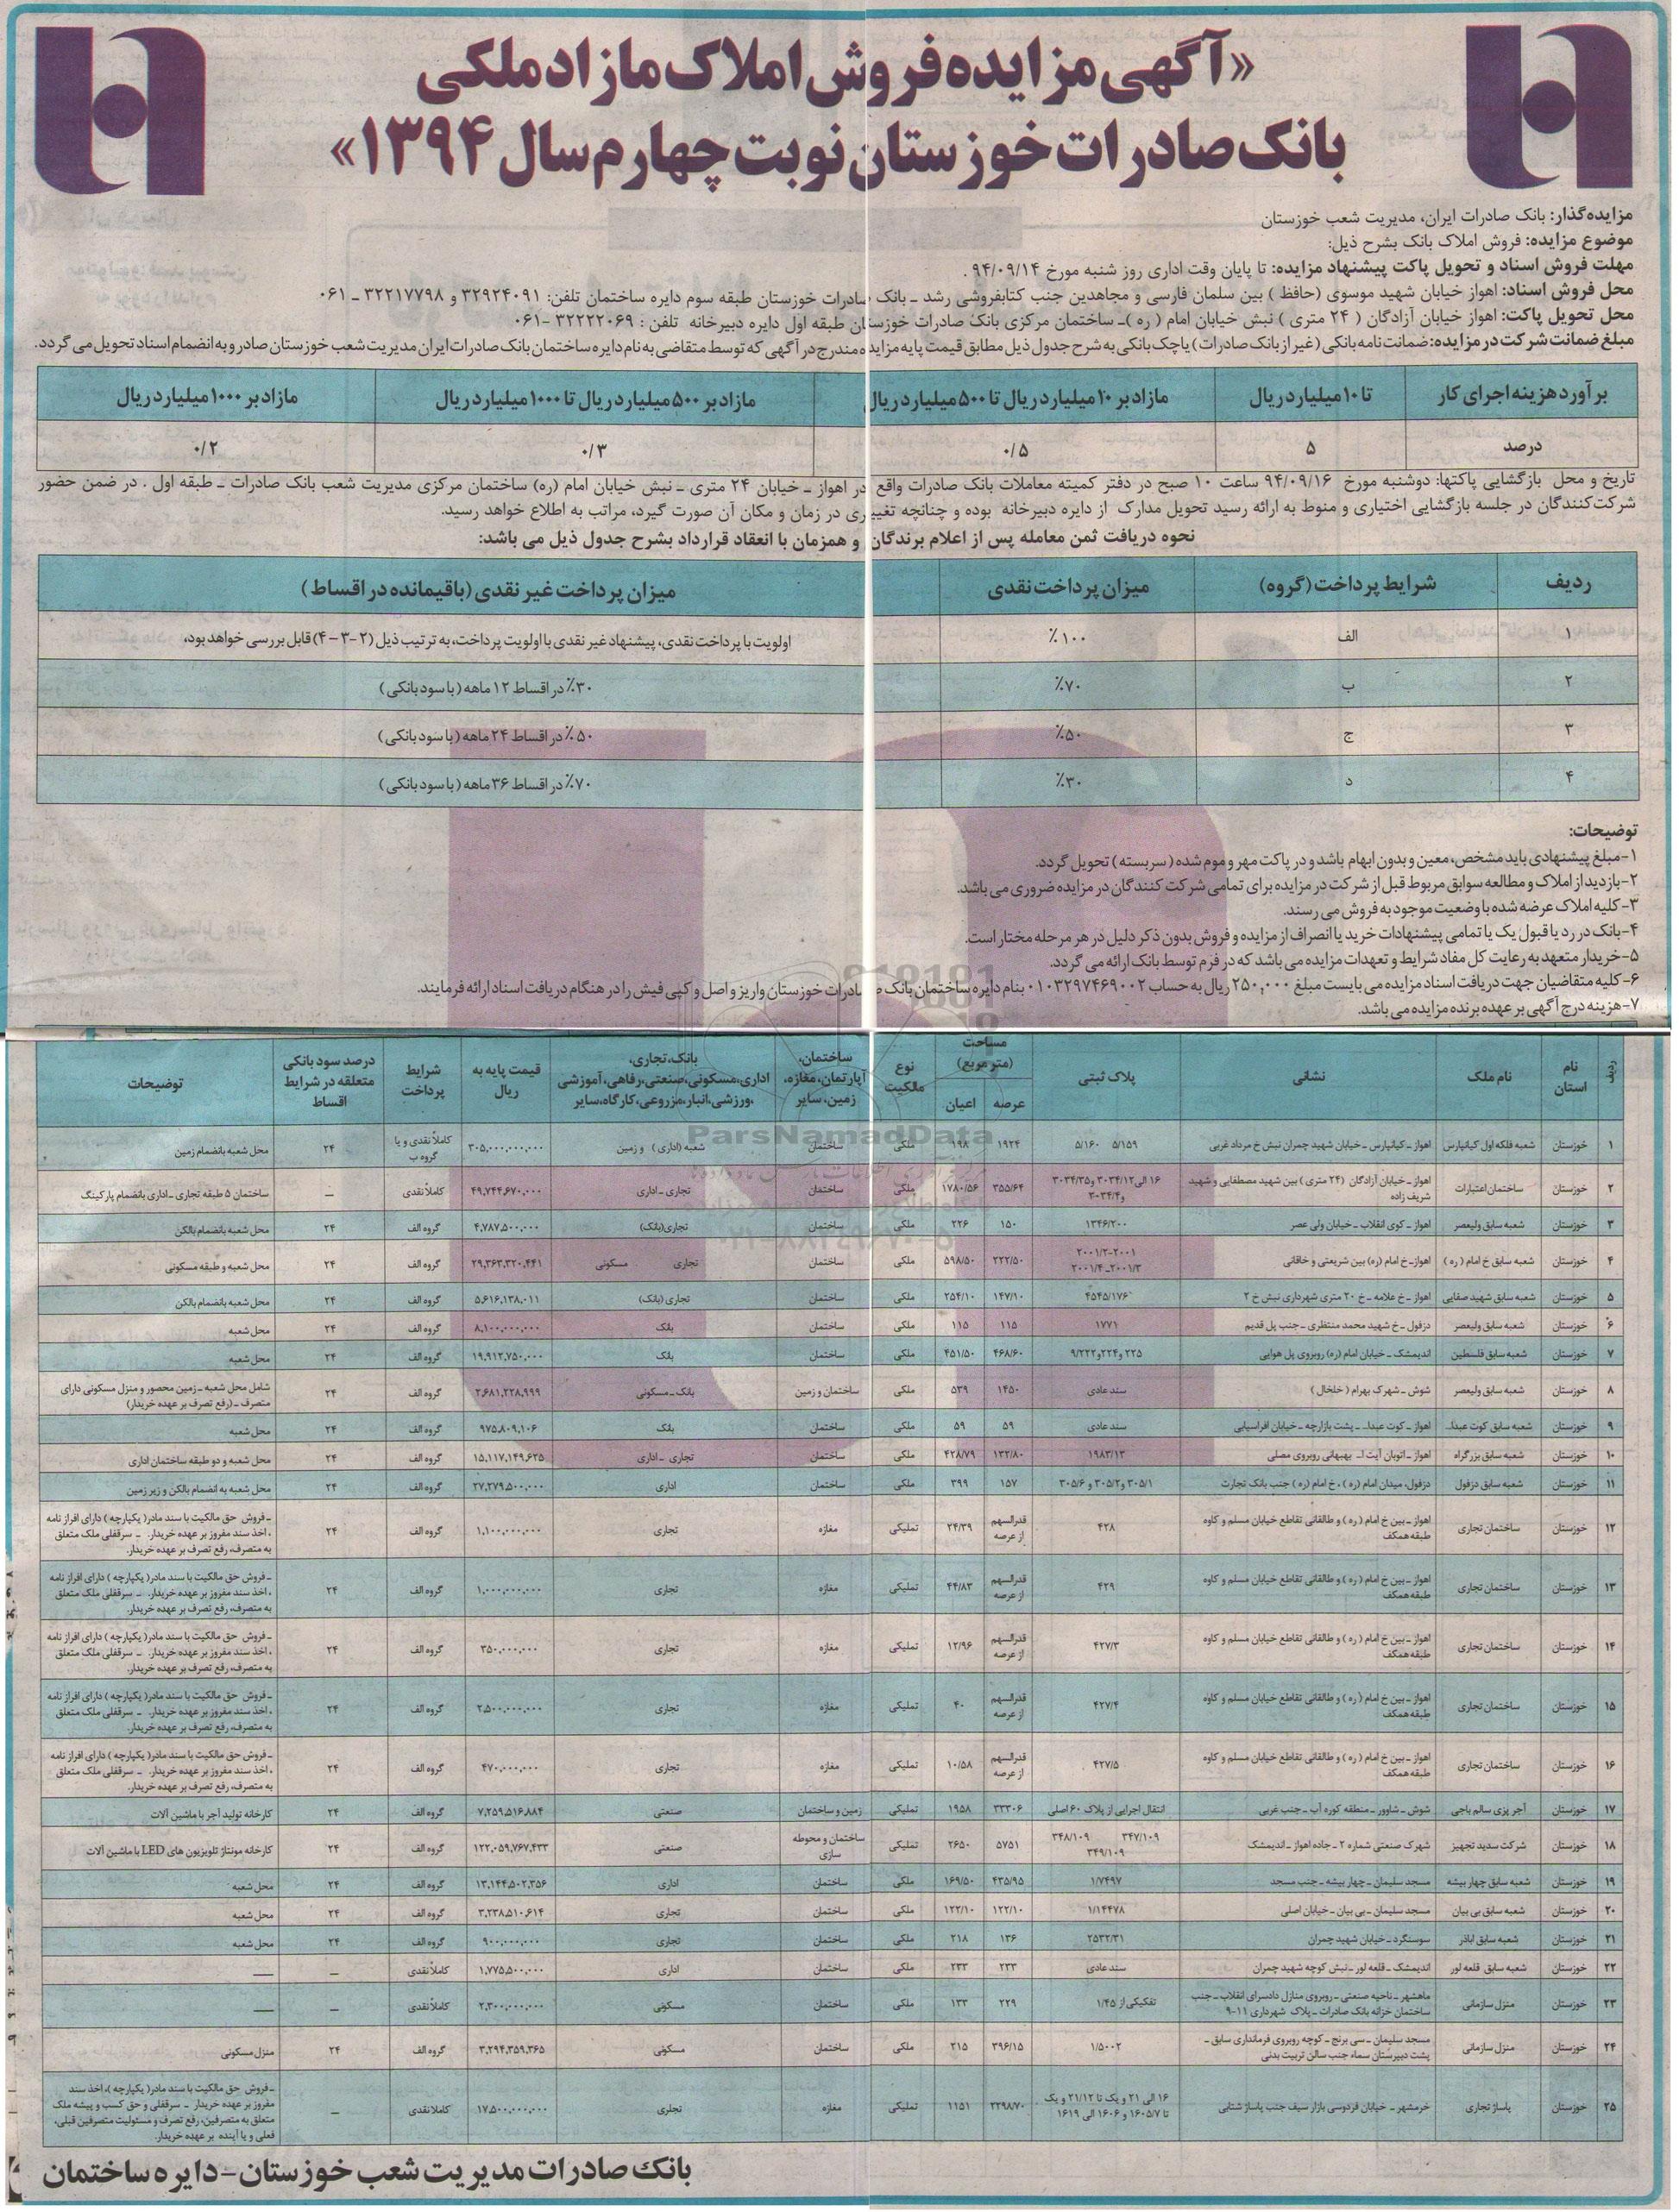 «آگهی مزایده فروش املاک مازاد ملکی
بانک صادرات خوزستان نوبت چهارم سال ۱۳۹۴»
مزایده‌گذار: بانک صادرات ایران، مدیریت شعب خوزستان
موضوع مزایده: فروش املاک بانک بشرح ذیل:
مهلت فروش اسناد و تحویل پاکت پیشنهاد مزایده: تا پایان وقت اداری روز شنبه مورخ ۹۴/۰۹/۱۴ .
محل فروش اسناد: اهواز خیابان شهید موسوی (حافظ ) بین سلمان فارسی و مجاهدین جنب کتابفروشی رشد ـ بانک صادرات خوزستان طبقه سوم دایره ساختمان تلفن: ۳۲۹۲۴۰۹۱ و ۳۲۲۱۷۷۹۸ ـ ۰۶۱
محل تحویل پاکت: اهواز خیابان آزادگان ( ۲۴ متری ) نبش خیابان امام ( ره )ـ ساختمان مرکزی بانک صادرات خوزستان طبقه اول دایره دبیرخانه تلفن : ۳۲۲۲۲۰۶۹ -۰۶۱
مبلغ ضمانت شرکت در مزایده: ضمانت نامه بانکی (غیر از بانک صادرات) یا چک بانکی به شرح جدول ذیل مطابق قیمت پایه مزایده مندرج در آگهی که توسط متقاضی به نام دایره ساختمان بانک صادرات ایران مدیریت شعب خوزستان صادر و به انضمام اسناد تحویل می گردد.
برآورد هزینه اجرای کار | تا ۱۰ میلیارد ریال | مازاد بر ۱۰ میلیارد ریال تا ۵۰۰ میلیارد ریال | مازاد بر ۵۰۰ میلیارد ریال تا ۱۰۰۰ میلیارد ریال | مازاد بر ۱۰۰۰ میلیارد ریال
درصد | ۵ | ۰/۵ | ۰/۳ | ۰/۲
تاریخ و محل بازگشایی پاکتها: دوشنبه مورخ ۹۴/۰۹/۱۶ ساعت ۱۰ صبح در دفتر کمیته معاملات بانک صادرات واقع در اهواز ـ خیابان ۲۴ متری ـ نبش خیابان امام (ره) ساختمان مرکزی مدیریت شعب بانک صادرات ـ طبقه اول . در ضمن حضور
شرکت‌کنندگان در جلسه بازگشایی اختیاری و منوط به ارائه رسید تحویل مدارک از دایره دبیرخانه بوده و چنانچه تغییری در زمان و مکان آن صورت گیرد، مراتب به اطلاع خواهد رسید.
نحوه دریافت ثمن معامله پس از اعلام برندگان و همزمان با انعقاد قرارداد بشرح جدول ذیل می باشد:
ردیف | شرایط پرداخت (گروه) | میزان پرداخت نقدی | میزان پرداخت غیر نقدی (باقیمانده در اقساط)
۱ | الف | ۱۰۰٪ | اولویت با پرداخت نقدی، پیشنهاد غیر نقدی با اولویت پرداخت، به ترتیب ذیل (۲-۳-۴) قابل بررسی خواهد بود،
۲ | ب | ۷۰٪ | ۳۰٪ در اقساط ۱۲ ماهه (با سود بانکی)
۳ | ج | ۵۰٪ | ۵۰٪ در اقساط ۲۴ ماهه (با سود بانکی)
۴ | د | ۳۰٪ | ۷۰٪ در اقساط ۳۶ ماهه (با سود بانکی)
توضیحات:
۱-مبلغ پیشنهادی باید مشخص، معین و بدون ابهام باشد و در پاکت مهر و موم شده (سربسته) تحویل گردد.
۲-بازدید از املاک و مطالعه سوابق مربوط قبل از شرکت در مزایده برای تمامی شرکت کنندگان در مزایده ضروری می باشد.
۳-کلیه املاک عرضه شده با وضعیت موجود به فروش می رسند.
۴-بانک در رد یا قبول یک یا تمامی پیشنهادات خرید یا انصراف از مزایده و فروش بدون ذکر دلیل در هر مرحله مختار است.
۵-خریدار متعهد به رعایت کل مفاد شرایط و تعهدات مزایده می باشد که در فرم توسط بانک ارائه می گردد.
۶-کلیه متقاضیان جهت دریافت اسناد مزایده می بایست مبلغ ۲۵۰,۰۰۰ ریال به حساب ۰۱۰۳۲۹۷۴۶۹۰۰۲ بنام دایره ساختمان بانک صادرات خوزستان واریز و اصل و کپی فیش را در هنگام دریافت اسناد ارائه فرمایند.
۷-هزینه درج آگهی بر عهده برنده مزایده می باشد.
ردیف | نام استان | نام ملک | نشانی | پلاک ثبتی | مساحت (مترمربع) عرصه | اعیان | نوع مالکیت | ساختمان، آپارتمان، مغازه، زمین، سایر | بانک، تجاری، اداری، مسکونی، صنعتی، رفاهی، آموزشی، ورزشی، انبار، مزروعی، کارگاه، سایر | قیمت پایه به ریال | شرایط پرداخت | درصد سود بانکی متعلقه در شرایط اقساط | توضیحات
۱ | خوزستان | شعبه فلکه اول کیانپارس | اهواز ـ کیانپارس ـ خیابان شهید چمران نبش خ مرداد غربی | ۵/۱۵۹ ۵/۱۶۰ | ۱۹۲۴ | ۱۹۸ | ملکی | ساختمان | شعبه (اداری) و زمین | ۳۰۵,۰۰۰,۰۰۰,۰۰۰ | کاملاً نقدی و یا گروه ب | ۲۴ | محل شعبه بانضمام زمین
۲ | خوزستان | ساختمان اعتبارات | اهواز ـ خیابان آزادگان (۲۴ متری) بین شهید مصطفایی و شهید شریف زاده | ۳۵۵/۶۴ | ۱۷۸۰/۵۶ | ملکی | ساختمان | تجاری ـ اداری | ۴۹,۷۴۴,۶۷۰,۰۰۰ | کاملاً نقدی | ـ | ساختمان ۵ طبقه تجاری ـ اداری بانضمام پارکینگ
۳ | خوزستان | شعبه سابق ولیعصر | اهواز ـ کوی انقلاب ـ خیابان ولی عصر | ۱۳۴۶/۲۰۰ | ۱۵۰ | ۲۲۶ | ملکی | ساختمان | تجاری(بانک) | ۴,۷۸۷,۵۰۰,۰۰۰ | گروه الف | ۲۴ | محل شعبه بانضمام بالکن
۴ | خوزستان | شعبه سابق خ امام (ره) | اهواز-خ امام (ره) بین شریعتی و خاقانی | ۲۰۰۱-۲۰۰۱/۲ ۲۰۰۱/۳ـ ۲۰۰۱/۴ | ۲۲۲/۵۰ | ۵۹۸/۵۰ | ملکی | ساختمان | تجاری مسکونی | ۲۹,۳۶۳,۳۲۰,۴۴۱ | گروه الف | ۲۴ | محل شعبه و طبقه مسکونی
۵ | خوزستان | شعبه سابق شهید صفایی | اهواز ـ خ علامه ـ خ ۲۰ متری شهرداری نبش خ ۲ | ۴۵۴۵/۱۷۶ | ۱۴۷/۱۰ | ۲۵۴/۱۰ | ملکی | ساختمان | تجاری (بانک) | ۵,۶۱۶,۱۳۸,۰۱۱ | گروه الف | ۲۴ | محل شعبه بانضمام بالکن
۶ | خوزستان | شعبه سابق ولیعصر | دزفول ـ خ شهید محمد منتظری ـ جنب پل قدیم | ۱۷۷۱ | ۱۱۵ | ۱۱۵ | ملکی | ساختمان | بانک | ۸,۱۰۰,۰۰۰,۰۰۰ | گروه الف | ۲۴ | محل شعبه
۷ | خوزستان | شعبه سابق فلسطین | اندیمشک ـ خیابان امام (ره) روبروی پل هوایی | ۲۲۵ و۲۲۴و۹/۲۲۲ | ۴۶۸/۶۰ | ۴۵۱/۵۰ | ملکی | ساختمان | بانک | ۱۹,۹۱۲,۷۵۰,۰۰۰ | گروه الف | ۲۴ | محل شعبه
۸ | خوزستان | شعبه سابق ولیعصر | شوش ـ شهرک بهرام ( خلخال ) | سند عادی | ۱۴۵۰ | ۵۳۹ | ملکی | ساختمان و زمین | بانک ـ مسکونی | ۲,۶۸۱,۲۲۸,۹۹۹ | گروه الف | ۲۴ | شامل محل شعبه ـ زمین محصور و منزل مسکونی دارای متصرف ـ (رفع تصرف بر عهده خریدار)
۹ | خوزستان | شعبه سابق کوت عبدا.. | اهواز ـ کوت عبدا.. ـ پشت بازارچه ـ خیابان افراسیابی | سند عادی | ۵۹ | ۵۹ | ملکی | ساختمان | بانک | ۹۷۵,۸۰۹,۱۰۶ | گروه الف | ۲۴ | محل شعبه
۱۰ | خوزستان | شعبه سابق بزرگراه | اهواز ـ اتوبان آیت ا.. بهبهانی روبروی مصلی | ۱۹۸۳/۱۳ | ۱۳۲/۸۰ | ۴۲۸/۷۹ | ملکی | ساختمان | تجاری ـ اداری | ۱۵,۱۱۷,۱۴۹,۶۲۵ | گروه الف | ۲۴ | محل شعبه و دو طبقه ساختمان اداری
۱۱ | خوزستان | شعبه سابق دزفول | دزفول، میدان امام (ره) ، خ امام (ره) جنب بانک تجارت | ۳۰۵/۱ و۳۰۵/۲ و ۳۰۵/۶ | ۱۵۷ | ۳۹۹ | ملکی | ساختمان | اداری | ۲۷,۲۷۹,۵۰۰,۰۰۰ | گروه الف | ۲۴ | محل شعبه به انضمام بالکن و زیر زمین
۱۲ | خوزستان | ساختمان تجاری | اهواز ـ بین خ امام (ره) و طالقانی تقاطع خیابان مسلم و کاوه طبقه همکف | ۴۲۸ | قدرالسهم از عرصه | ۲۴/۳۹ | تملیکی | مغازه | تجاری | ۱,۱۰۰,۰۰۰,۰۰۰ | گروه الف | ۲۴ | ـ فروش حق مالکیت با سند مادر( یکپارچه ) دارای افراز نامه ، اخذ سند مفروز بر عهده خریدار. ـ سرقفلی ملک متعلق به متصرف، رفع تصرف بر عهده خریدار.
۱۳ | خوزستان | ساختمان تجاری | اهواز ـ بین خ امام (ره) و طالقانی تقاطع خیابان مسلم و کاوه طبقه همکف | ۴۲۹ | قدرالسهم از عرصه | ۴۴/۸۳ | تملیکی | مغازه | تجاری | ۱,۰۰۰,۰۰۰,۰۰۰ | گروه الف | ۲۴ | ـ فروش حق مالکیت با سند مادر( یکپارچه ) دارای افراز نامه ، اخذ سند مفروز بر عهده خریدار. ـ سرقفلی ملک متعلق به متصرف، رفع تصرف بر عهده خریدار.
۱۴ | خوزستان | ساختمان تجاری | اهواز ـ بین خ امام (ره) و طالقانی تقاطع خیابان مسلم و کاوه طبقه همکف | ۴۲۷/۳ | قدرالسهم از عرصه | ۱۲/۹۶ | تملیکی | مغازه | تجاری | ۳۵۰,۰۰۰,۰۰۰ | گروه الف | ۲۴ | ـ فروش حق مالکیت با سند مادر( یکپارچه ) دارای افراز نامه ، اخذ سند مفروز بر عهده خریدار. ـ سرقفلی ملک متعلق به متصرف، رفع تصرف بر عهده خریدار.
۱۵ | خوزستان | ساختمان تجاری | اهواز ـ بین خ امام (ره) و طالقانی تقاطع خیابان مسلم و کاوه طبقه همکف | ۴۲۷/۴ | قدرالسهم از عرصه | ۴۰ | تملیکی | مغازه | تجاری | ۲,۵۰۰,۰۰۰,۰۰۰ | گروه الف | ۲۴ | ـ فروش حق مالکیت با سند مادر( یکپارچه ) دارای افراز نامه ، اخذ سند مفروز بر عهده خریدار. ـ سرقفلی ملک متعلق به متصرف، رفع تصرف بر عهده خریدار.
۱۶ | خوزستان | ساختمان تجاری | اهواز ـ بین خ امام (ره) و طالقانی تقاطع خیابان مسلم و کاوه طبقه همکف | ۴۲۷/۵ | قدرالسهم از عرصه | ۱۰/۵۸ | تملیکی | مغازه | تجاری | ۴۷۰,۰۰۰,۰۰۰ | گروه الف | ۲۴ | ـ فروش حق مالکیت با سند مادر( یکپارچه ) دارای افراز نامه ، اخذ سند مفروز بر عهده خریدار. ـ سرقفلی ملک متعلق به متصرف، رفع تصرف بر عهده خریدار.
۱۷ | خوزستان | آجر پزی سالم باجی | شوش ـ شاوور ـ منطقه کوره آب ـ جنب غربی | انتقال اجرایی از پلاک ۶۰ اصلی | ۳۳۳۰۶ | ۱۹۵۸ | تملیکی | زمین و ساختمان | صنعتی | ۷,۲۵۹,۵۱۶,۸۸۴ | گروه الف | ۲۴ | کارخانه تولید آجر با ماشین آلات
۱۸ | خوزستان | شرکت سدید تجهیز | شهرک صنعتی شماره ۲ ـ جاده اهواز ـ اندیمشک | ۳۴۷/۱۰۹ ۳۴۸/۱۰۹ ۳۴۹/۱۰۹ | ۵۷۵۱ | ۲۶۵۰ | تملیکی | ساختمان و محوطه سازی | صنعتی | ۱۲۲,۰۵۹,۷۶۷,۴۳۳ | گروه الف | ۲۴ | کارخانه مونتاژ تلویزیون های LED با ماشین آلات
۱۹ | خوزستان | شعبه سابق چهار بیشه | مسجد سلیمان ـ چهار بیشه ـ جنب مسجد | ۱/۷۴۹۷ | ۴۳۵/۹۵ | ۱۶۹/۵۰ | ملکی | ساختمان | اداری | ۱۳,۱۴۴,۵۰۲,۳۵۶ | گروه الف | ۲۴ | محل شعبه
۲۰ | خوزستان | شعبه سابق بی بیان | مسجد سلیمان ـ بی بیان ـ خیابان اصلی | ۱/۱۴۴۷۸ | ۱۲۲/۱۰ | ۱۲۲/۱۰ | ملکی | ساختمان | تجاری | ۳,۲۳۸,۵۱۰,۶۱۴ | گروه الف | ۲۴ | محل شعبه
۲۱ | خوزستان | شعبه سابق اباذر | سوسنگرد ـ خیابان شهید چمران | ۲۵۳۲/۳۱ | ۱۳۶ | ۲۱۸ | ملکی | ساختمان | تجاری | ۹۰۰,۰۰۰,۰۰۰ | گروه الف | ۲۴ | محل شعبه
۲۲ | خوزستان | شعبه سابق قلعه لور | اندیمشک ـ قلعه لور ـ نبش کوچه شهید چمران | سند عادی | ۲۳۳ | ۲۳۳ | ملکی | ساختمان | اداری | ۱,۷۷۵,۵۰۰,۰۰۰ | کاملاً نقدی | ـ | ـــ
۲۳ | خوزستان | منزل سازمانی | ماهشهر ـ ناحیه صنعتی ـ روبروی منازل دادسرای انقلاب ـ جنب ساختمان خزانه بانک صادرات ـ پلاک شهرداری ۱۱-۹ | تفکیکی از ۱/۴۵ | ۲۲۹ | ۱۳۳ | ملکی | ساختمان | مسکونی | ۲,۳۰۰,۰۰۰,۰۰۰ | کاملاً نقدی | ـ | ـــ
۲۴ | خوزستان | منزل سازمانی | مسجد سلیمان ـ سی برنج ـ کوچه روبروی فرمانداری سابق ـ پشت دبیرستان سماء جنب سالن تربیت بدنی | ۱/۵۰۰۲ | ۳۹۶/۱۵ | ۲۱۵ | ملکی | ساختمان | مسکونی | ۳,۲۹۴,۳۵۹,۳۶۵ | گروه الف | ۲۴ | منزل مسکونی
۲۵ | خوزستان | پاساژ تجاری | خرمشهر ـ خیابان فردوسی بازار سیف جنب پاساژ شتابی | ۱۶ الی ۲۱ و یک تا ۲۱/۱۲ و یک تا ۱۶۰۵/۷ و ۱۶۰۶ الی ۱۶۱۹ | ۲۲۹۸/۷۰ | ۱۱۵۱ | تملیکی | مغازه | تجاری | ۱۷,۵۰۰,۰۰۰,۰۰۰ | کاملا نقدی | ـ | ـ فروش حق مالکیت با سند مادر( یکپارچه )، اخذ سند مفروز بر عهده خریدار ـ سرقفلی و حق کسب و پیشه ملک متعلق به متصرفین، رفع تصرف و مسئولیت متصرفین قبلی، فعلی و یا آینده بر عهده خریدار.
ParsNamadData
بانک صادرات مدیریت شعب خوزستان - دایره ساختمان